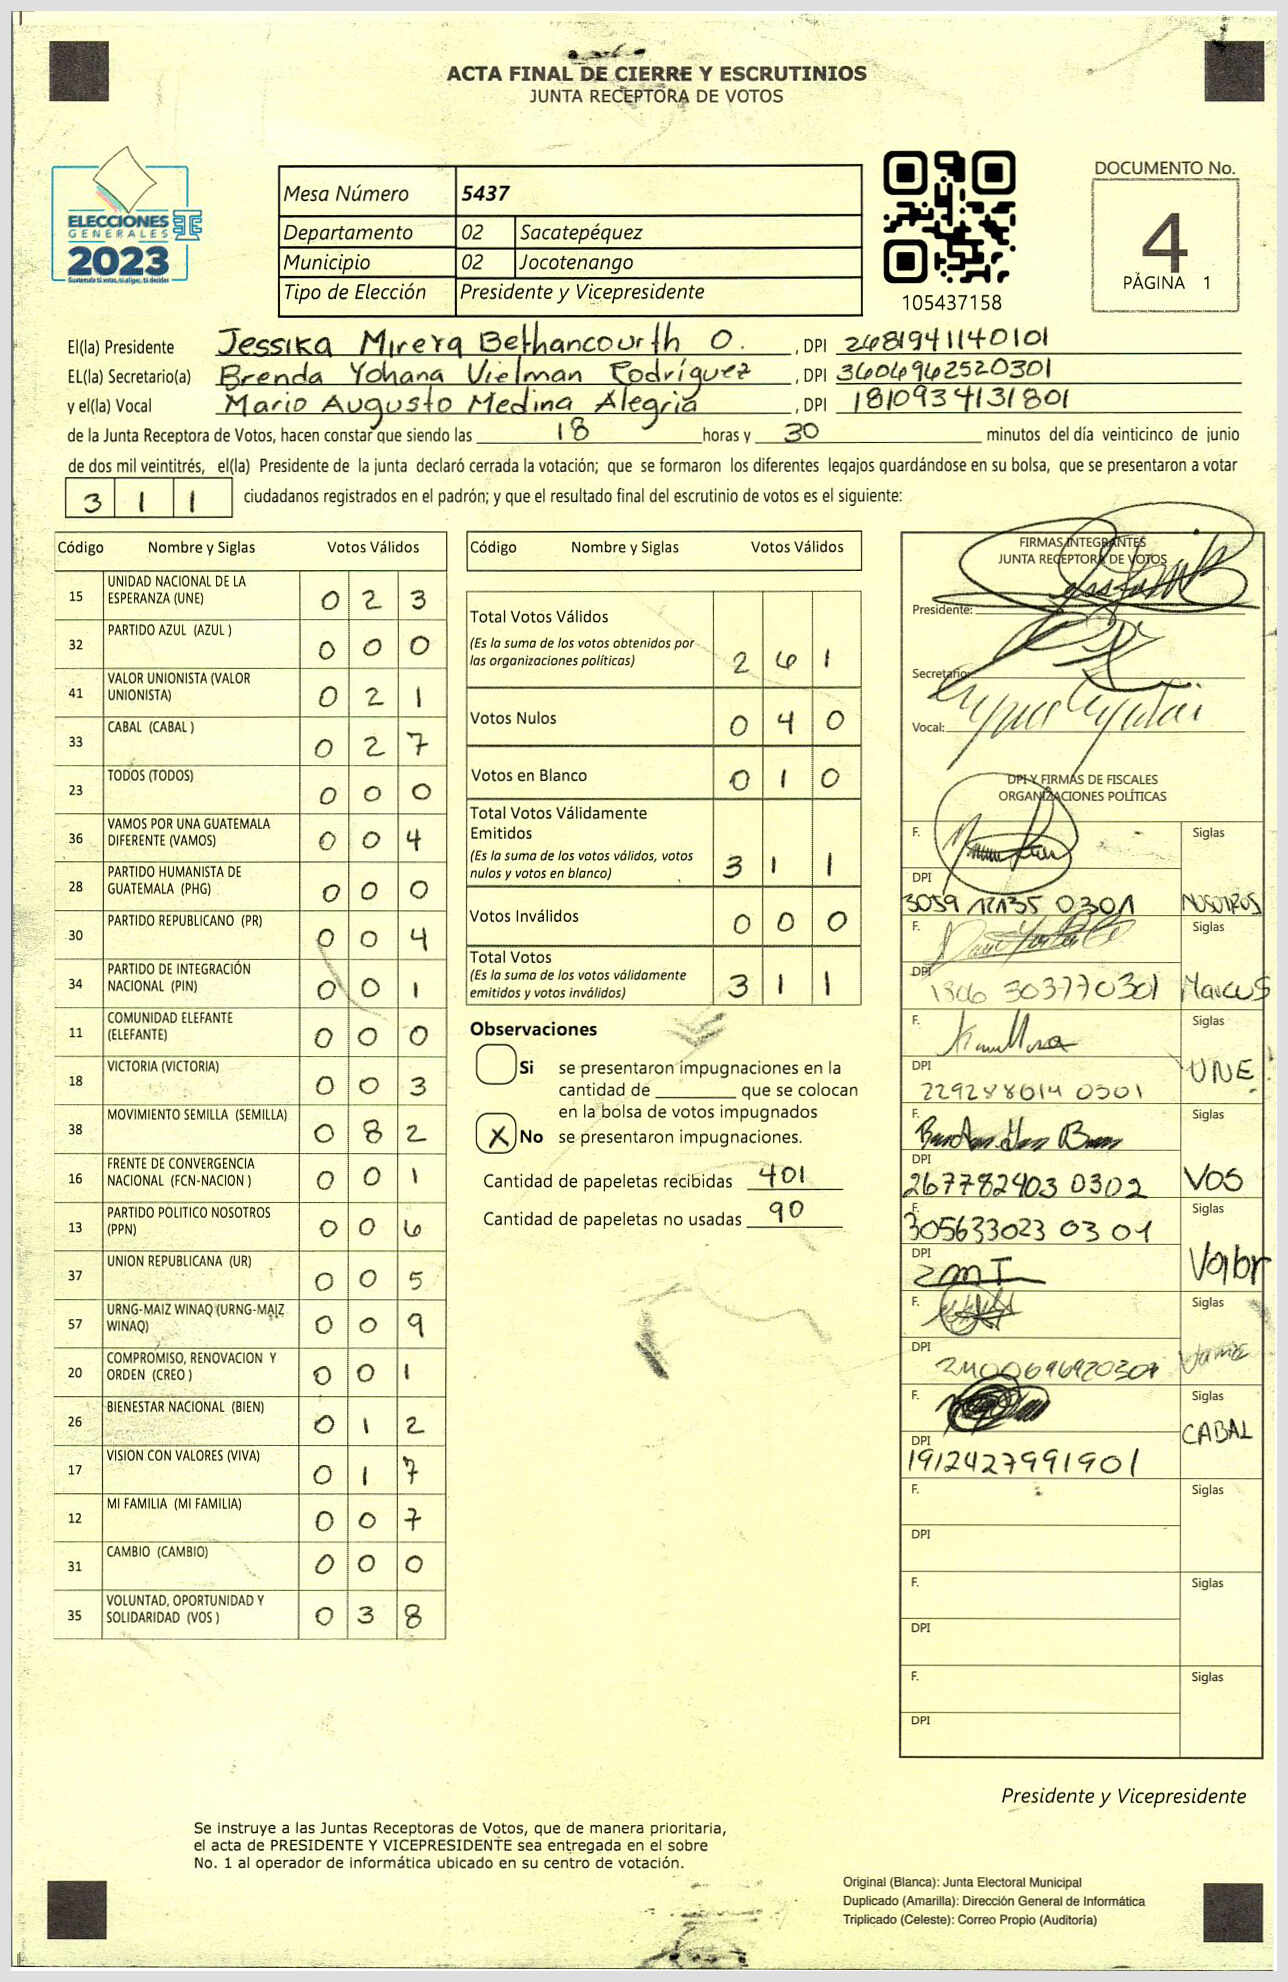 ACTA FINAL DE CIERRE Y ESCRUTINIOS
JUNTA RECEPTORA DE VOTOS
ELECCIONES
GENERALES
2023
Guatemala tú votas, tú eliges, tú decides
Mesa Número 5437
Departamento 02 Sacatepéquez
Municipio 02 Jocotenango
Tipo de Elección Presidente y Vicepresidente
105437158
DOCUMENTO No.
4
PÁGINA 1
El(la) Presidente Jessika Mireya Bethancourth O. , DPI 2481941140101
EL(la) Secretario(a) Brenda Yohana Vielman Rodríguez , DPI 3604962520301
y el(la) Vocal Mario Augusto Medina Alegria , DPI 1810934131801
de la Junta Receptora de Votos, hacen constar que siendo las 18 horas y 30 minutos del día veinticinco de junio
de dos mil veintitrés, el(la) Presidente de la junta declaró cerrada la votación; que se formaron los diferentes legajos guardándose en su bolsa, que se presentaron a votar
3 1 1 ciudadanos registrados en el padrón; y que el resultado final del escrutinio de votos es el siguiente:
Código Nombre y Siglas Votos Válidos
15 UNIDAD NACIONAL DE LA
ESPERANZA (UNE) 0 2 3
32 PARTIDO AZUL (AZUL ) 0 0 0
41 VALOR UNIONISTA (VALOR
UNIONISTA) 0 2 1
33 CABAL (CABAL ) 0 2 7
23 TODOS (TODOS) 0 0 0
36 VAMOS POR UNA GUATEMALA
DIFERENTE (VAMOS) 0 0 4
28 PARTIDO HUMANISTA DE
GUATEMALA (PHG) 0 0 0
30 PARTIDO REPUBLICANO (PR) 0 0 4
34 PARTIDO DE INTEGRACIÓN
NACIONAL (PIN) 0 0 1
11 COMUNIDAD ELEFANTE
(ELEFANTE) 0 0 0
18 VICTORIA (VICTORIA) 0 0 3
38 MOVIMIENTO SEMILLA (SEMILLA) 0 8 2
16 FRENTE DE CONVERGENCIA
NACIONAL (FCN-NACION ) 0 0 1
13 PARTIDO POLITICO NOSOTROS
(PPN) 0 0 6
37 UNION REPUBLICANA (UR) 0 0 5
57 URNG-MAIZ WINAQ (URNG-MAIZ
WINAQ) 0 0 9
20 COMPROMISO, RENOVACION Y
ORDEN (CREO ) 0 0 1
26 BIENESTAR NACIONAL (BIEN) 0 1 2
17 VISION CON VALORES (VIVA) 0 1 7
12 MI FAMILIA (MI FAMILIA) 0 0 7
31 CAMBIO (CAMBIO) 0 0 0
35 VOLUNTAD, OPORTUNIDAD Y
SOLIDARIDAD (VOS ) 0 3 8
Código Nombre y Siglas Votos Válidos
Total Votos Válidos
(Es la suma de los votos obtenidos por
las organizaciones políticas) 2 6 1
Votos Nulos 0 4 0
Votos en Blanco 0 1 0
Total Votos Válidamente
Emitidos
(Es la suma de los votos válidos, votos
nulos y votos en blanco) 3 1 1
Votos Inválidos 0 0 0
Total Votos
(Es la suma de los votos válidamente
emitidos y votos inválidos) 3 1 1
Observaciones
Si se presentaron impugnaciones en la
cantidad de ________ que se colocan
en la bolsa de votos impugnados
X No se presentaron impugnaciones.
Cantidad de papeletas recibidas 401
Cantidad de papeletas no usadas 90
FIRMAS INTEGRANTES
JUNTA RECEPTORA DE VOTOS
Presidente:
Secretario:
Vocal:
DPI Y FIRMAS DE FISCALES
ORGANIZACIONES POLÍTICAS
F. Siglas
DPI
0301 NOSOTROS
F. Siglas
DPI
303770301 Marcus
F. Siglas
DPI UNE
2292880140301
F. Siglas
DPI
267782403 0302 VOS
F. Siglas
305633023 03 01
DPI Valor
F. Siglas
DPI
F. Siglas
DPI CABAL
1912427991901
F. Siglas
DPI
F. Siglas
DPI
F. Siglas
DPI
Presidente y Vicepresidente
Se instruye a las Juntas Receptoras de Votos, que de manera prioritaria,
el acta de PRESIDENTE Y VICEPRESIDENTE sea entregada en el sobre
No. 1 al operador de informática ubicado en su centro de votación.
Original (Blanca): Junta Electoral Municipal
Duplicado (Amarilla): Dirección General de Informática
Triplicado (Celeste): Correo Propio (Auditoría)